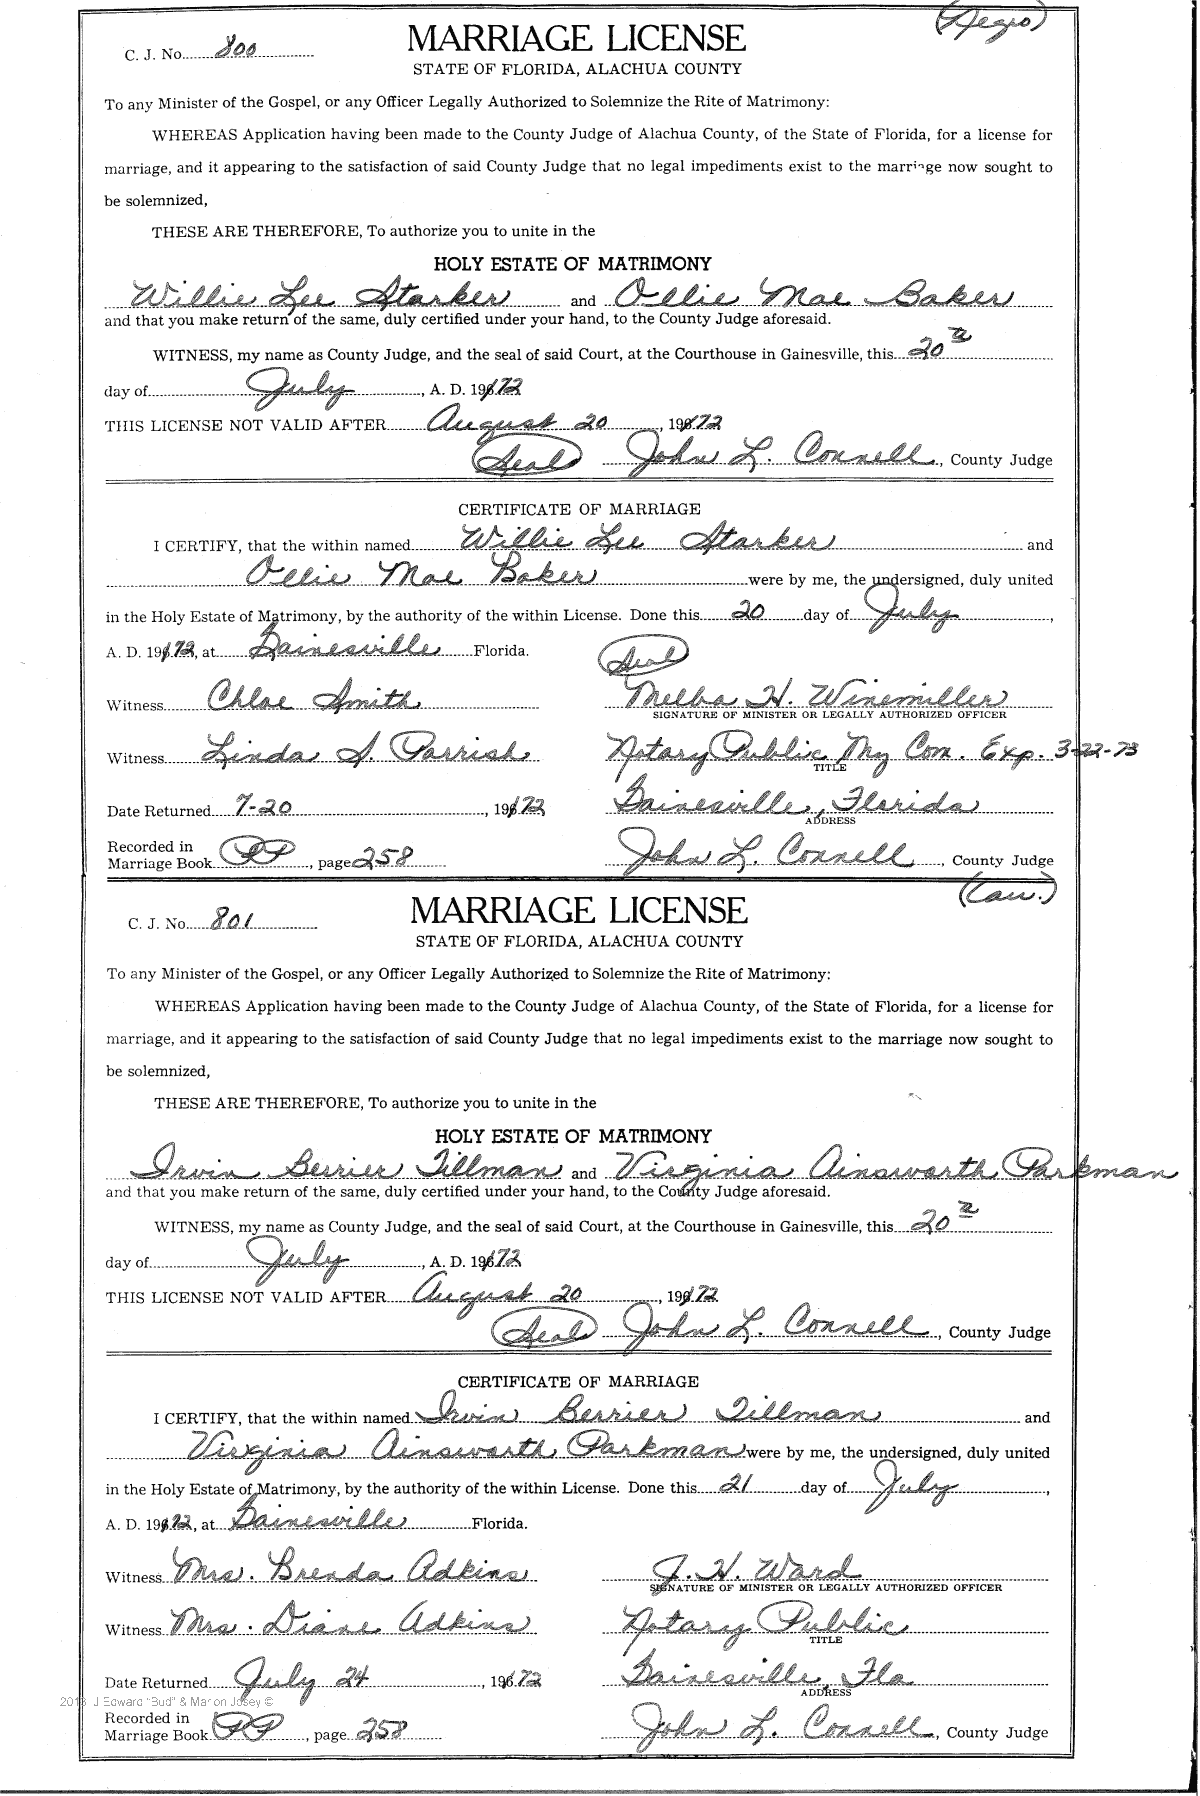 (Negro)
C. J. No. 800
MARRIAGE LICENSE
STATE OF FLORIDA, ALACHUA COUNTY
To any Minister of the Gospel, or any Officer Legally Authorized to Solemnize the Rite of Matrimony:
WHEREAS Application having been made to the County Judge of Alachua County, of the State of Florida, for a license for
marriage, and it appearing to the satisfaction of said County Judge that no legal impediments exist to the marriage now sought to
be solemnized,
THESE ARE THEREFORE, To authorize you to unite in the
HOLY ESTATE OF MATRIMONY
Willie Lee Starker and Ollie Mae Baker
and that you make return of the same, duly certified under your hand, to the County Judge aforesaid.
WITNESS, my name as County Judge, and the seal of said Court, at the Courthouse in Gainesville, this 20th
day of July, A. D. 1972
THIS LICENSE NOT VALID AFTER August 20, 1972
(Seal) John L. Connell, County Judge
CERTIFICATE OF MARRIAGE
I CERTIFY, that the within named Willie Lee Starker and
Ollie Mae Baker were by me, the undersigned, duly united
in the Holy Estate of Matrimony, by the authority of the within License. Done this 20 day of July,
A. D. 1972, at Gainesville Florida. (Seal)
Witness Chloe Smith Melba H. Winemiller
SIGNATURE OF MINISTER OR LEGALLY AUTHORIZED OFFICER
Witness Linda S. Parrish Notary Public My Com. Exp. 3-22-73
TITLE
Date Returned 7-20, 1972 Gainesville, Florida
ADDRESS
Recorded in
Marriage Book PP, page 258 John L. Connell, County Judge
(Cau.)
C. J. No. 801
MARRIAGE LICENSE
STATE OF FLORIDA, ALACHUA COUNTY
To any Minister of the Gospel, or any Officer Legally Authorized to Solemnize the Rite of Matrimony:
WHEREAS Application having been made to the County Judge of Alachua County, of the State of Florida, for a license for
marriage, and it appearing to the satisfaction of said County Judge that no legal impediments exist to the marriage now sought to
be solemnized,
THESE ARE THEREFORE, To authorize you to unite in the
HOLY ESTATE OF MATRIMONY
Irvin Berrier Tillman and Virginia Ainsworth Parkman
and that you make return of the same, duly certified under your hand, to the County Judge aforesaid.
WITNESS, my name as County Judge, and the seal of said Court, at the Courthouse in Gainesville, this 20th
day of July, A. D. 1972
THIS LICENSE NOT VALID AFTER August 20, 1972
(Seal) John L. Connell, County Judge
CERTIFICATE OF MARRIAGE
I CERTIFY, that the within named Irvin Berrier Tillman and
Virginia Ainsworth Parkman were by me, the undersigned, duly united
in the Holy Estate of Matrimony, by the authority of the within License. Done this 21 day of July,
A. D. 1972, at Gainesville Florida.
Witness Mrs. Brenda Adkins J. H. Ward
SIGNATURE OF MINISTER OR LEGALLY AUTHORIZED OFFICER
Witness Mrs. Diane Adkins Notary Public
TITLE
Date Returned July 24, 1972 Gainesville, Fla
ADDRESS
2013 J Edward "Bud" & Marion Josey ©
Recorded in
Marriage Book PP, page 258 John L. Connell, County Judge